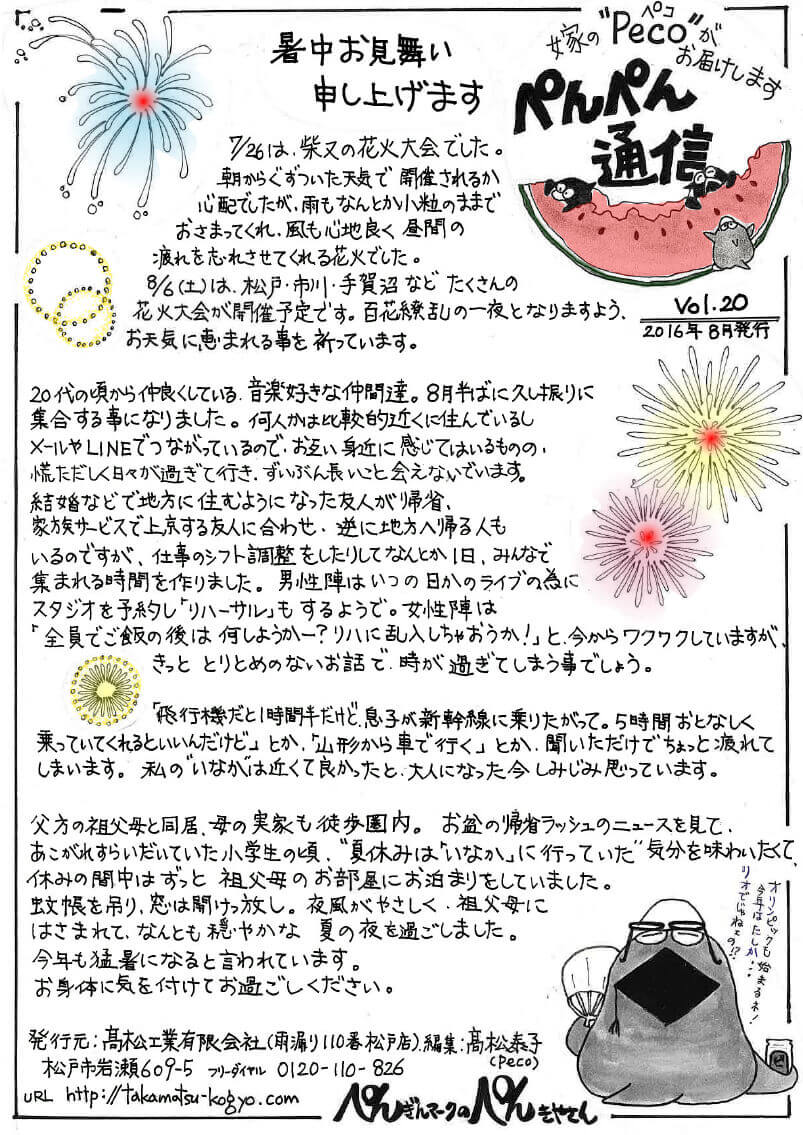 暑中お見舞い
申し上げます
女家の"Peco"が
ペコ
お届けします
ぺんぺん
通信
Vol.20
2016年8月発行
7/26は、柴又の花火大会でした。
朝からぐずついた天気で開催されるか
心配でしたが、雨もなんとか小粒のままで
おさまってくれ、風も心地良く昼間の
疲れを忘れさせてくれる花火でした。
8/6(土)は、松戸・市川・手賀沼など たくさんの
花火大会が開催予定です。百花繚乱の一夜となりますよう、
お天気に恵まれる事を祈っています。
20代の頃から仲良くしている、音楽好きな仲間達。8月半ばに久し振りに
集合する事になりました。何人かは比較的近くに住んでいるし
メールやLINEでつながっているので、お互い身近に感じてはいるものの、
慌ただしく日々が過ぎて行き、ずいぶん長いこと会えないでいます。
結婚などで地方に住むようになった友人が帰省、
家族サービスで上京する友人に合わせ、逆に地方へ帰る人も
いるのですが、仕事のシフト調整をしたりしてなんとか1日、みんなで
集まれる時間を作りました。男性陣はいつの日かのライブの為に
スタジオを予約し「リハーサル」もするようで。女性陣は
「全員でご飯の後は何しようかー?リハに乱入しちゃおうか!」と、今からワクワクしていますが、
きっと とりとめのないお話で、時が過ぎてしまう事でしょう。
「飛行機だと1時間半だけど、息子が新幹線に乗りたがって。5時間おとなしく
乗っていてくれるといいんだけど」とか、「山形から車で行く」とか、聞いただけでちょっと疲れて
しまいます。私の"いなか"は近くて良かったと、大人になった今しみじみ思っています。
父方の祖父母と同居、母の実家も徒歩圏内。お盆の帰省ラッシュのニュースを見て、
あこがれすらいだいていた小学生の頃、"夏休みは「いなか」に行っていた"気分を味わいたくて、
休みの間中はずっと 祖父母のお部屋にお泊まりをしていました。
蚊帳を吊り、窓は開けっ放し。夜風がやさしく、祖父母に
はさまれて、なんとも穏やかな 夏の夜を過ごしました。
今年も猛暑になると言われています。
お身体に気を付けてお過ごしください。
オリンピックも始まるネ!
今年はたしか・・・
リオでじゃねェの!?
発行元:髙松工業有限会社(雨漏り110番松戸店).編集:髙松泰子
(Peco)
松戸市岩瀬609-5 フリーダイヤル 0120-110-826
URL http://takamatsu-kogyo.com
ぺんぎんマークのぺんきやさん